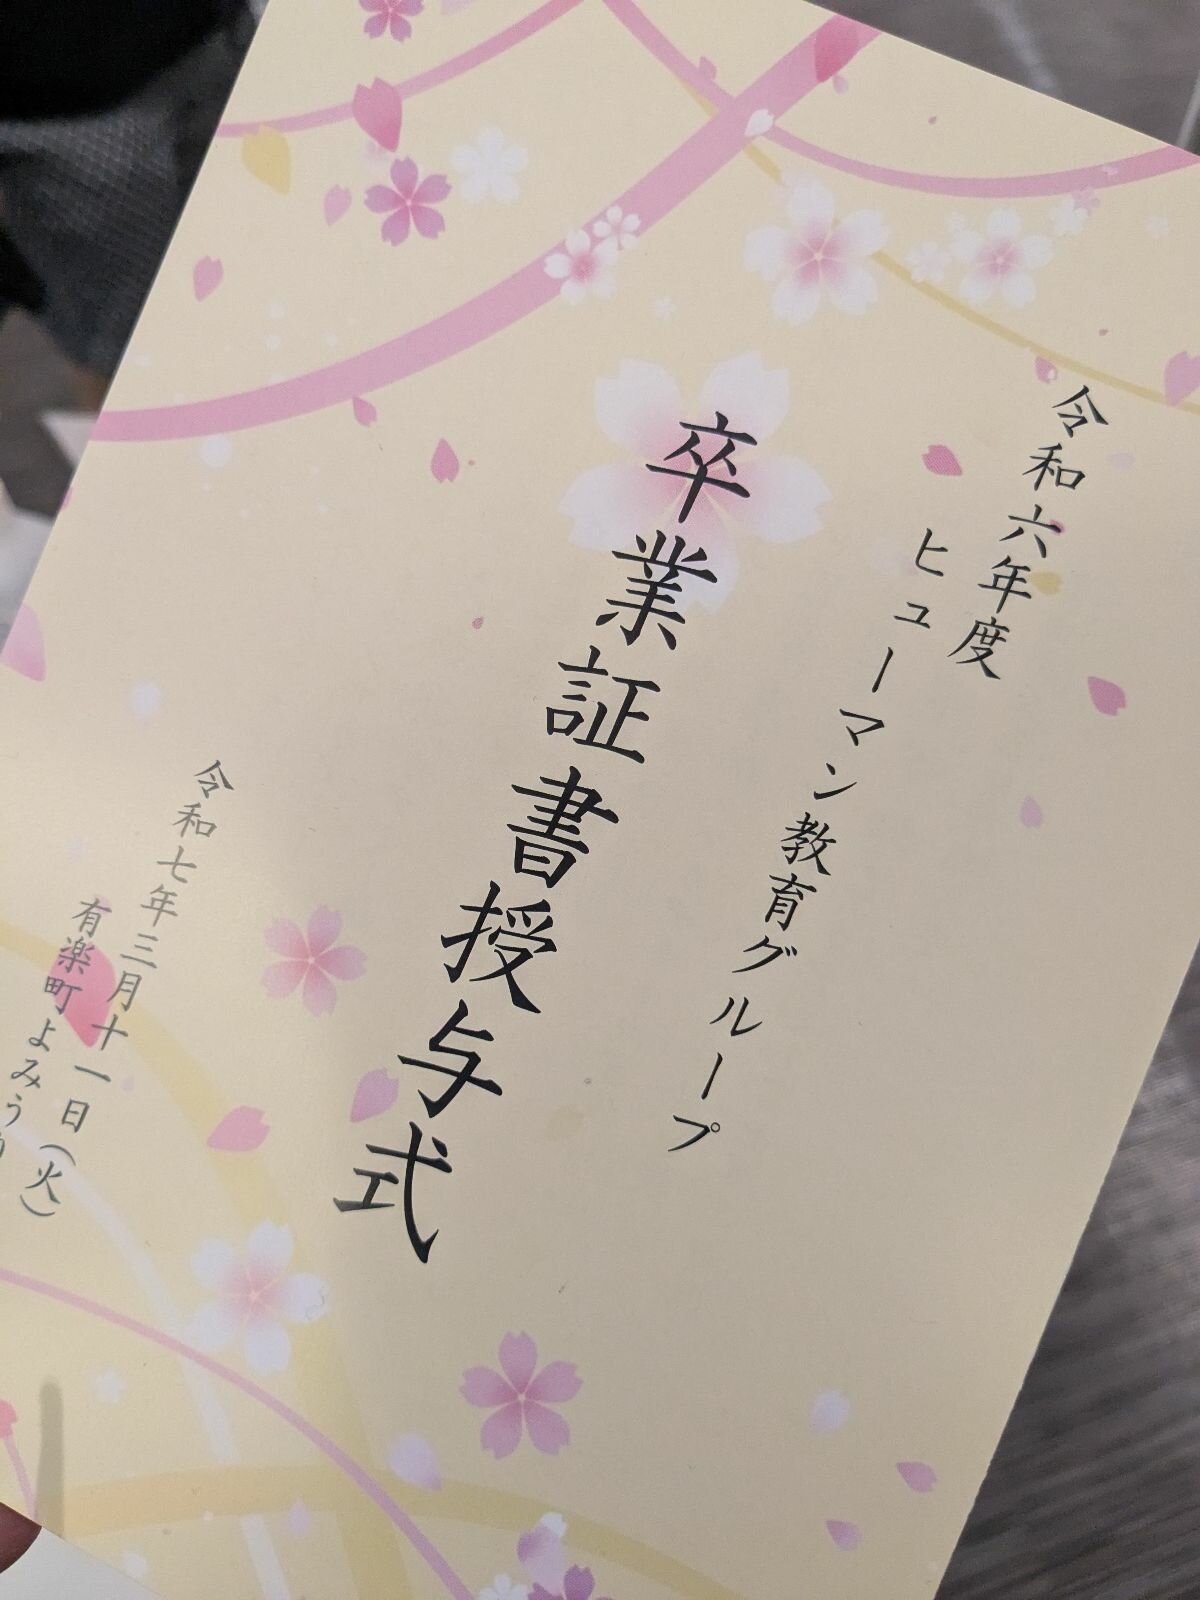 令和六年度
ヒューマン教育グループ
卒業証書授与式
令和七年三月十一日（火）
有楽町よみう